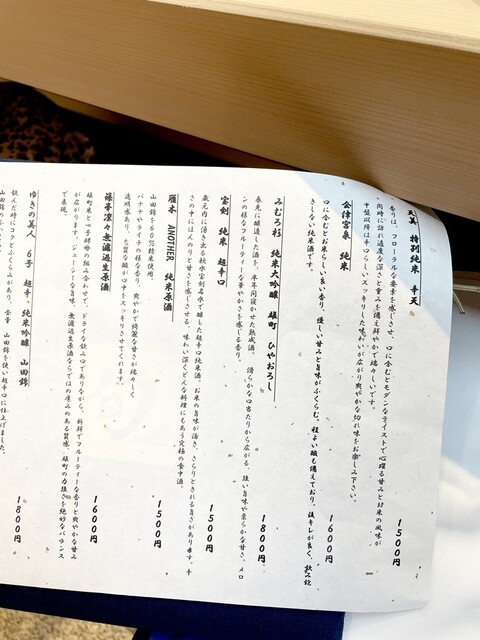 天美 特別純米 辛天
香りは、フローラルな要素を感じさせ、口に含むとモダンなテイストで心躍る甘みとお米の風味が
同時に訪れ適度な深さと重みを備え鮮やかで瑞々しいです。
中盤以降は辛口らしいスッキリした味わいが広がり爽やかな切れ味をお楽しみ下さい。
1500円
会津宮泉 純米
口に含むとお米らしい良い香り、優しい甘みと旨味がふくらむ。程よい酸も備えており、後キレが良く、飲み飽
きしない純米酒です。
1600円
みむろ杉 純米大吟醸 雄町 ひやおろし
春先に醸造した酒を、半年間寝かせた熟成酒。 滑らかな口当たりから広がる、強い旨味や柔らかな甘み、メロ
ンの様なフルーティーな華やかさを感じる香り。
1800円
宝剣 純米 超辛口
蔵元内に湧き出る軟水宝剣名水で醸した超辛口純米酒。お米の旨味が活き、さらりときれる旨さがあります。辛
さの中にほんのりと甘さを感じさせる、味わい深くどんな料理にもあう究極の食中酒。
1500円
雁木 ANOTHER 純米原酒
山田錦を60%精米使用。
バナナやライチの様な香り、爽やかで綺麗な甘さが瑞々しく
透明感あり、上質な酸が口中をスッキリさせてくれます。
1500円
篠峯凛々無濾過生原酒
雄町米と9号酵母の組み合わせで、ドライな飲み口でありながら、新鮮でフルーティーな香りと爽やかな甘み
が広がります。ジューシーな旨味、無濾過生原酒ならではの厚みのある質感、雄町の力強さを絶妙なバランス
で表現。
1600円
ゆきの美人 6号 超辛 純米吟醸 山田錦
飲んだ時にコクとふくらみがあり、全量 山田錦を使い超辛口に仕上げました。
1800円